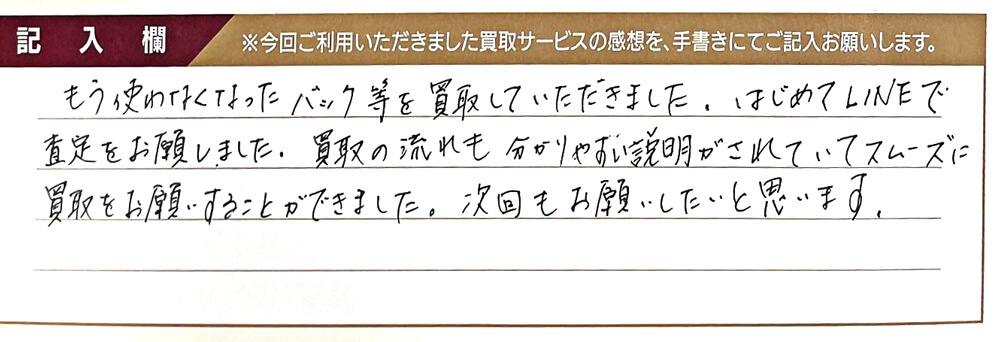 記入欄
※今回ご利用いただきました買取サービスの感想を、手書きにてご記入お願いします。
もう使わなくなったバック等を買取していただきました。はじめてLINEで
査定をお願しました。買取の流れも分かりやすい説明がされていてスムーズに
買取をお願いすることができました。次回もお願いしたいと思います。